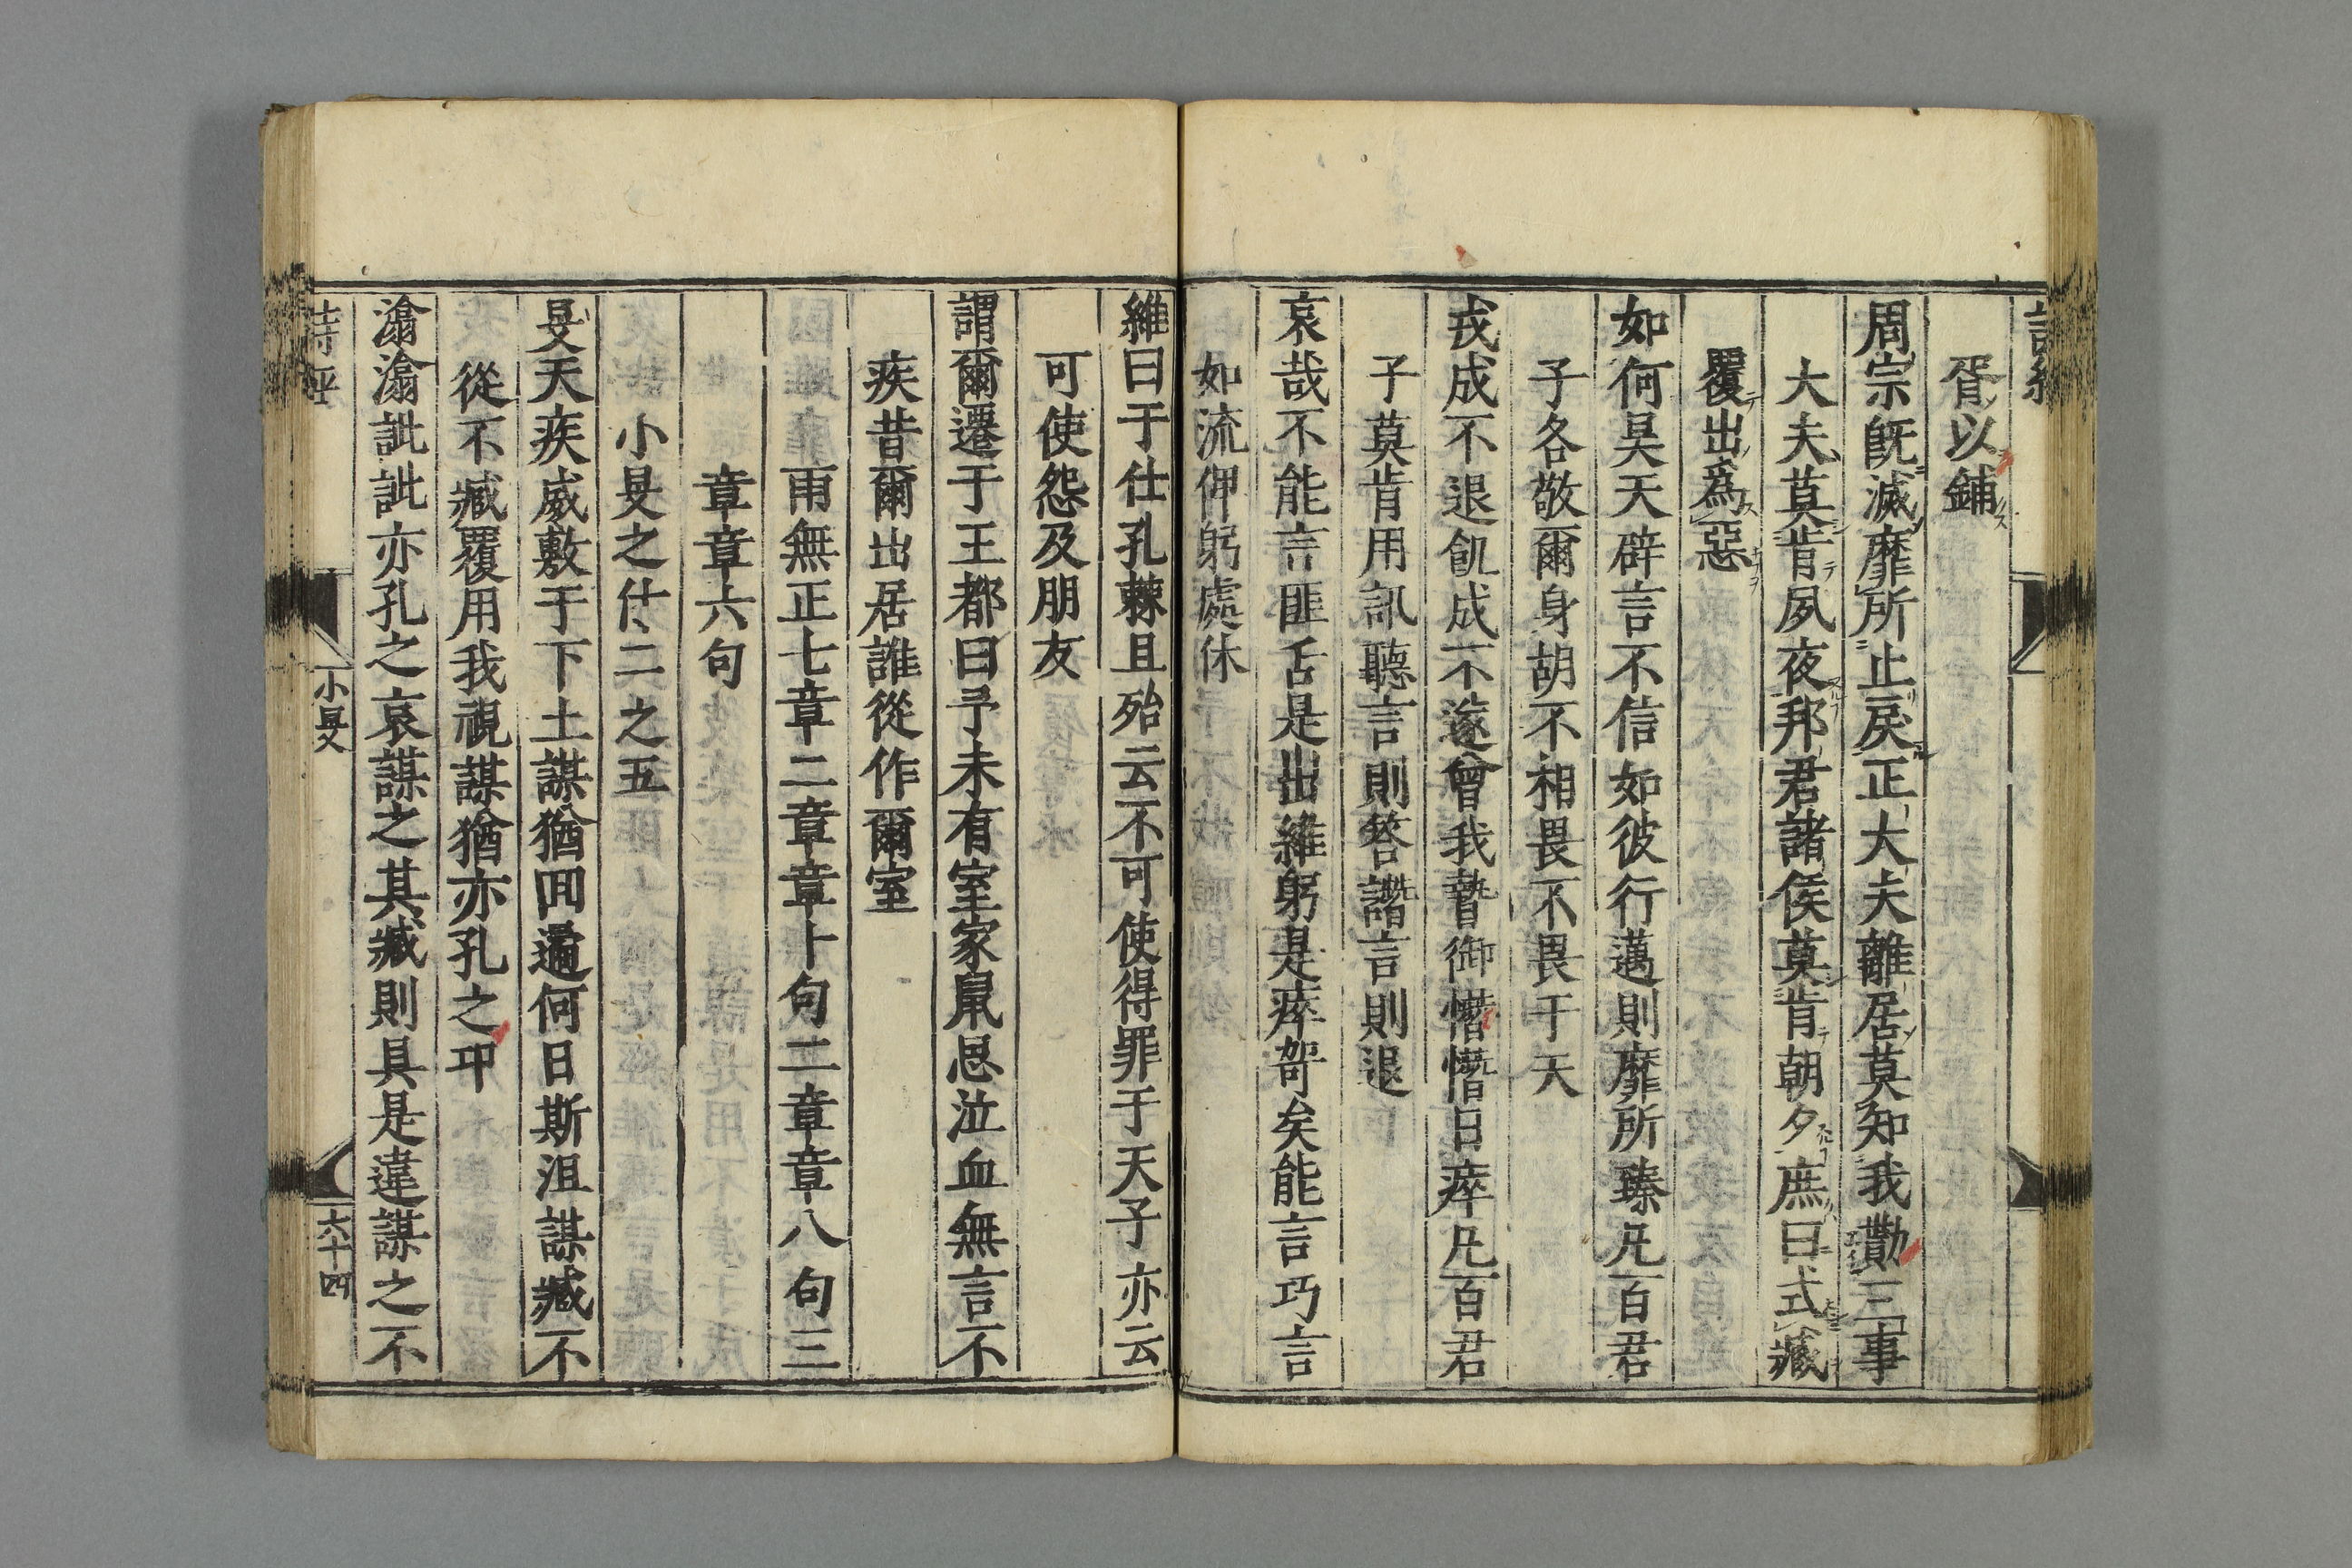 胥以鋪
周宗既滅靡所止戾正大夫離居莫知我勩三事
大夫莫肯夙夜邦君諸侯莫肯朝夕庶曰式臧
覆出爲惡
如何昊天辟言不信如彼行邁則靡所臻凡百君
子各敬爾身胡不相畏不畏于天
戎成不退飢成不遂曾我暬御憯憯日瘁凡百君
子莫肯用訊聽言則答譖言則退
哀哉不能言匪舌是出維躬是瘁哿矣能言巧言
如流俾躬處休
維曰于仕孔棘且殆云不可使得罪于天子亦云
可使怨及朋友
謂爾遷于王都曰予未有室家鼠思泣血無言不
疾昔爾出居誰從作爾室
雨無正七章二章章十句二章章八句三
章章六句
小旻之什二之五
旻天疾威敷于下土謀猶回遹何日斯沮謀臧不
從不臧覆用我視謀猶亦孔之邛
潝潝訿訿亦孔之哀謀之其臧則具是違謀之不
詩經 小旻 六十四